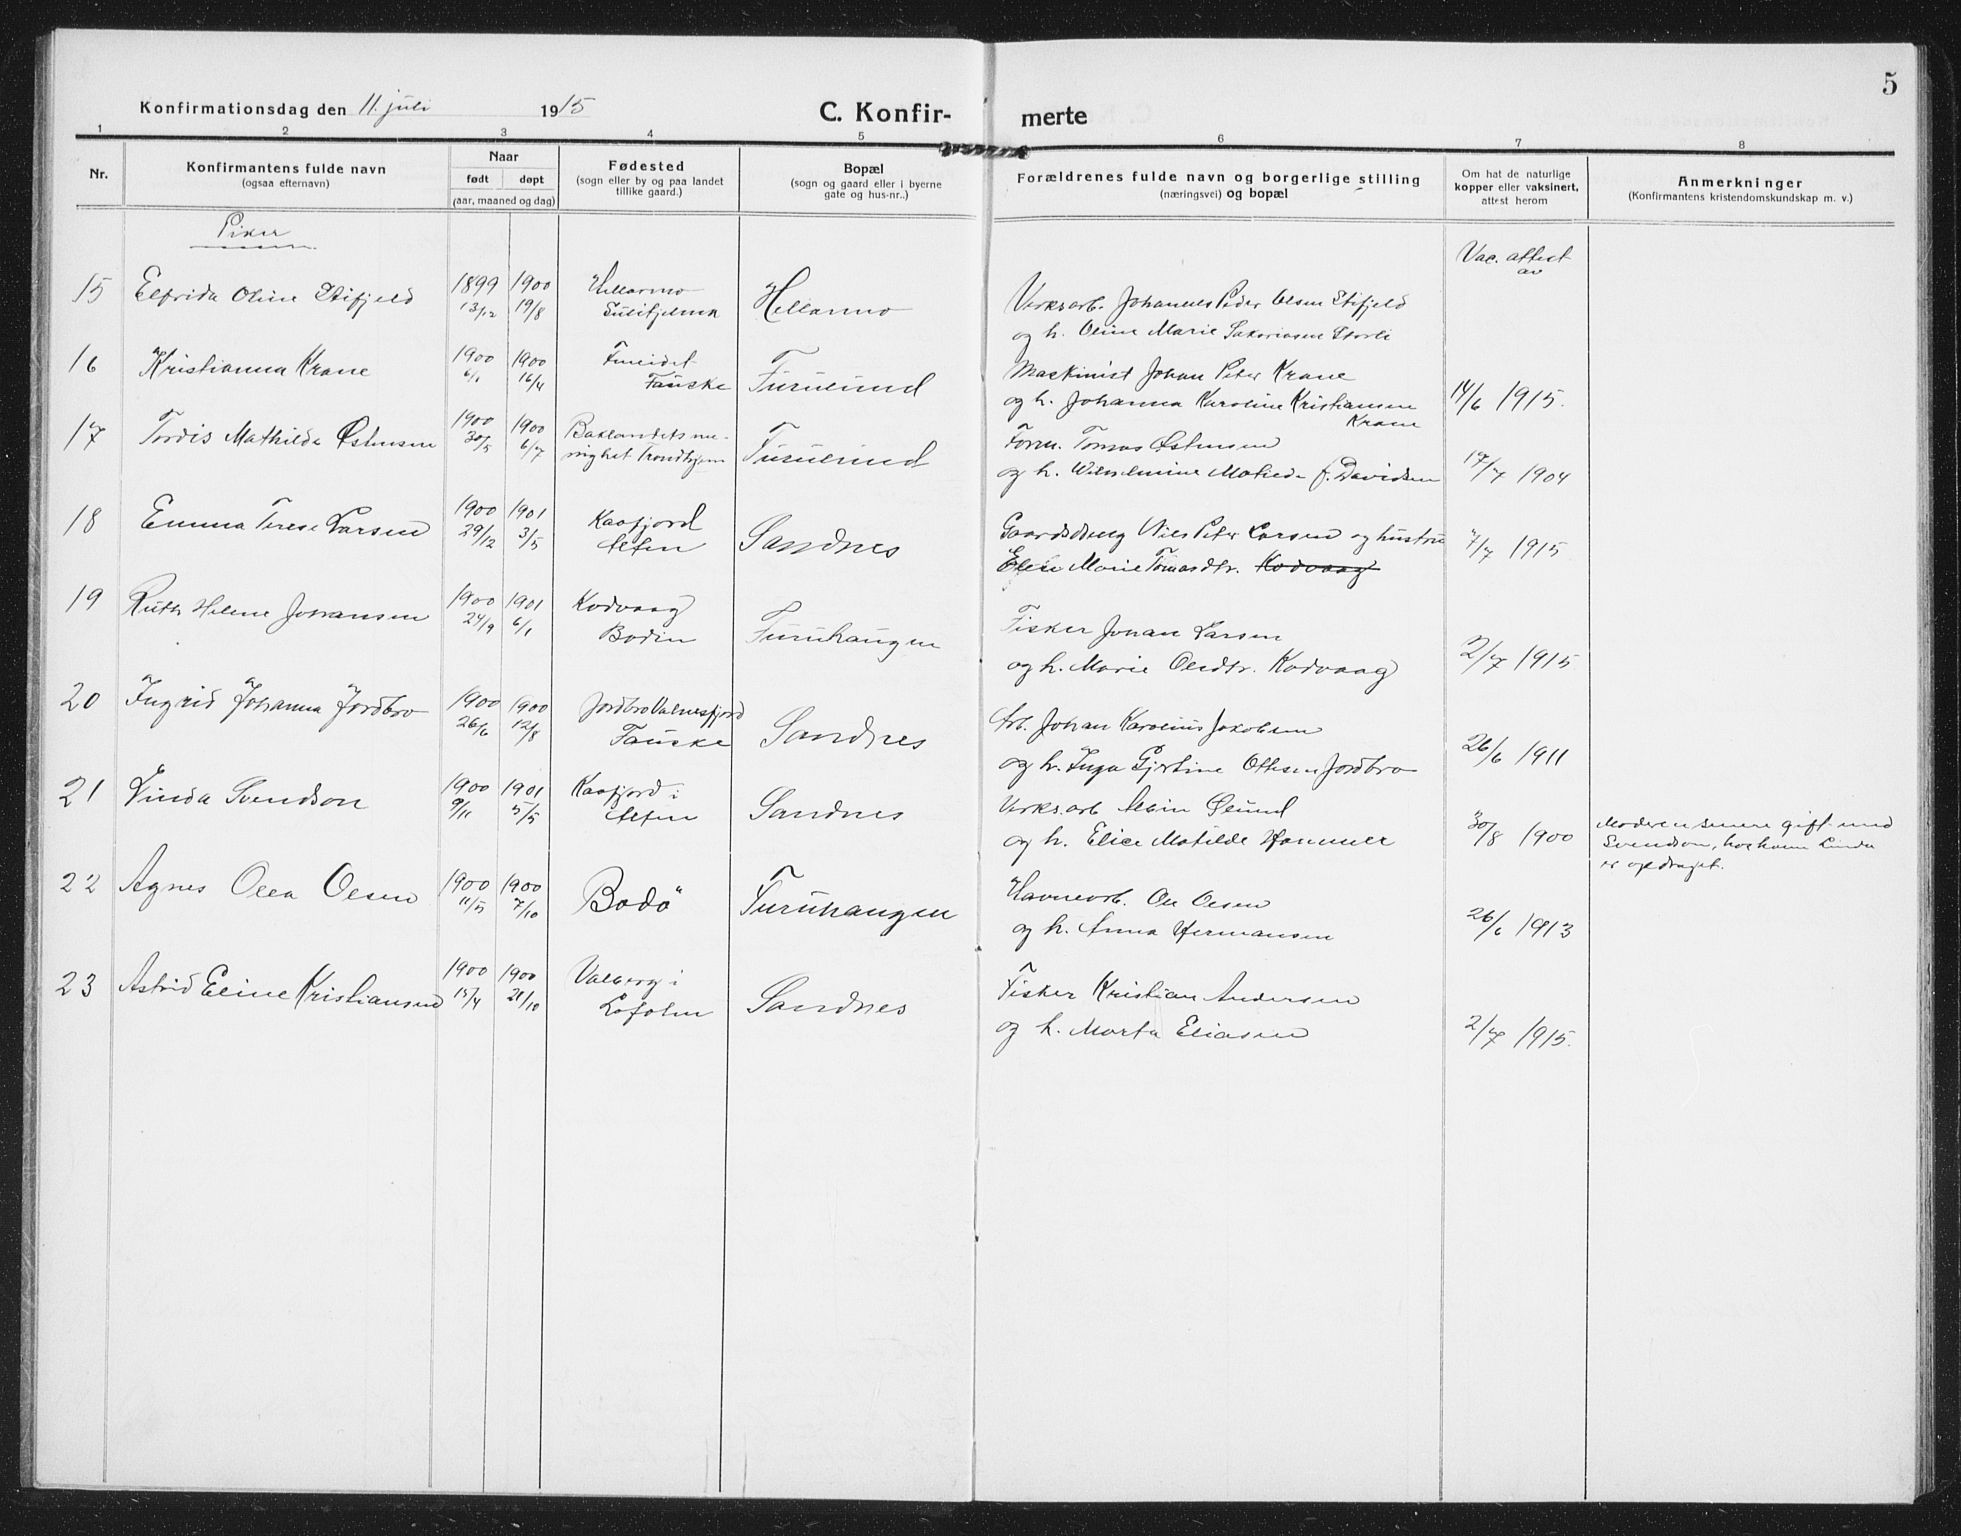 5
Konfirmationsdag den 11. juli 1915
C. Konfir- merte
1 2 3 4 5 6 7 8
Nr.
Konfirmantens fulde navn
(ogsaa efternavn)
Naar
født døpt
(aar, maaned og dag)
Fødested
(sogn eller by og paa landet
tillike gaard.)
Bopæl
(sogn og gaard eller i byerne
gate og hus-nr..)
Forældrenes fulde navn og borgerlige stilling
(næringsvei) og bopæl
Om hat de naturlige
kopper eller vaksinert,
attest herom
Anmerkninger
(Konfirmantens kristendomskundskap m. v.)
Piker
Vac. attest
av
15 Elfrida Oline Stifjeld 1899 1900 Hellarmo Hellarmo Verksarb. Johannes Peder Olsen Stifjeld
13/12 19/8 Sulitjelma og h. Oline Marie Sakariasen Storli
16 Kristianna Krane 1900 1900 Fineidet Furulund Maskinist Johan Peter Krane
6/1 16/4 Fauske og h. Johanna Karoline Kristiansen 14/6 1915.
Krane
17 Tordis Mathilda Østensen 1900 1900 Baklandets me- Furulund Form. Tomas Østensen
30/5 6/7 nighet Trondhjem og h. Wilhelmine Matilda f. Davidsen 17/7 1904
18 Emma Terese Larsen 1900 1901 Kaafjord Sandnes Gaardsdreng Nils Peter Larsen og hustru
29/12 3/5 Alten Elen Marie Tomasdtr. Kodvaag 7/7 1915
19 Ruth Helene Johansen 1900 1901 Kodvaag Furuhaugen Fisker Johan Larsen
24/9 6/1 Bodin og h. Marie Olsdtr. Kodvaag 2/7 1915
20 Ingrid Johanna Jordbro 1900 1900 Jordbro Valnesfjord Sandnes Arb. Johan Karolius Jakobsen
26/6 12/8 Fauske og h. Inga Gjertine Ottesen Jordbro 26/6 1911
21 Linda Svendson 1900 1901 Kaafjord i Sandnes Verksarb Albin Ølund
9/11 5/5 Alten og h. Elice Matilde Hammer 30/8 1900
Moderen senere gift med
Svendson, hos hvem Linda
er opdraget.
22 Agnes Olea Olsen 1900 1900 Bodö Furuhaugen Havnearb. Ole Olsen
11/5 7/10 og h. Anna Hermansen 26/6 1913
23 Astrid Eline Kristiansen 1900 1900 Valberg i Sandnes Fisker Kristian Andersen
15/4 21/10 Lofoten og h. Marta Eliasen 2/7 1915.